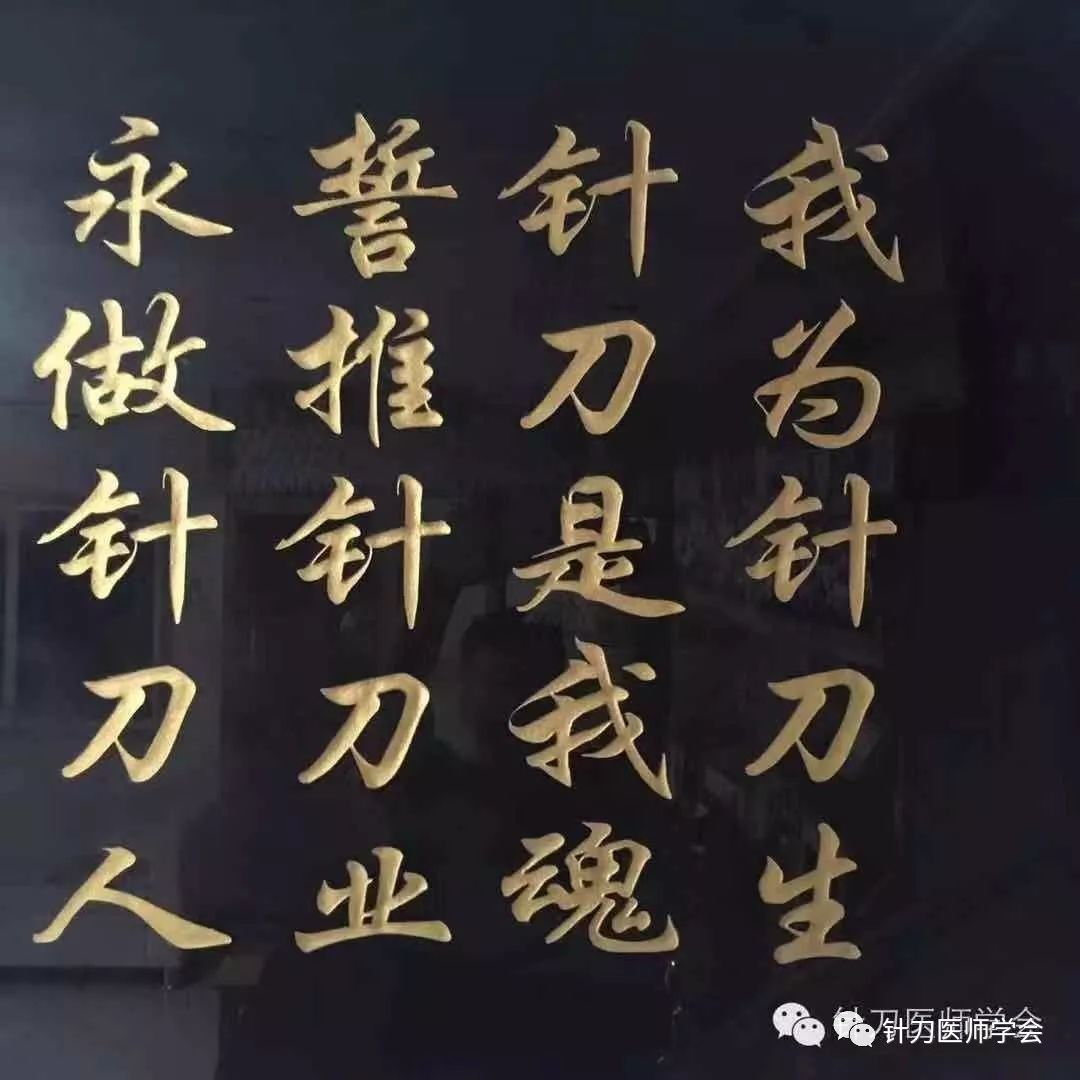 我为针刀生
针刀是我魂
誓推针刀业
永做针刀人
针刀医师学会
针刀医师学会